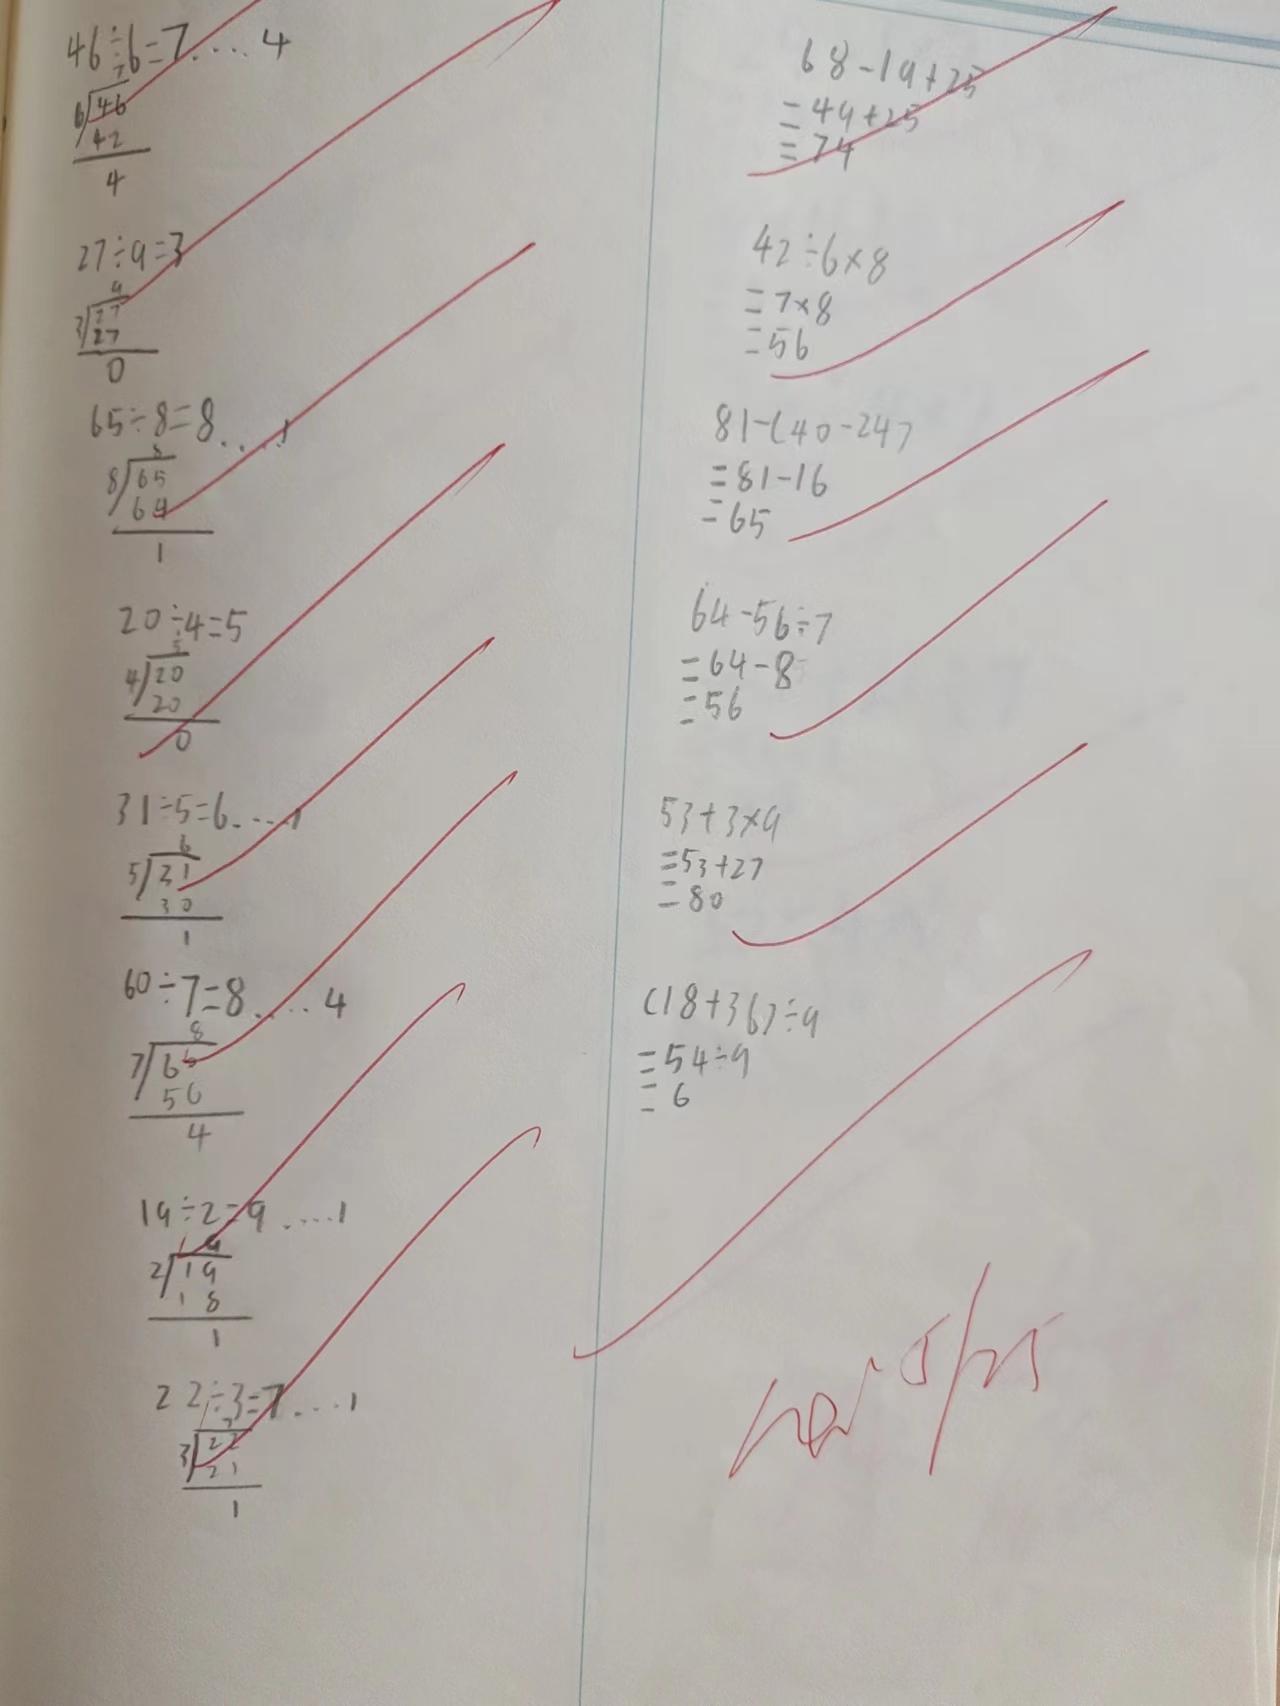 46÷6=7....4
7
6 46
42
4
27÷9=3
9
3 27
27
0
65÷8=8....1
8
8 65
64
1
20÷4=5
5
4 20
20
0
31÷5=6....1
6
5 31
30
1
60÷7=8....4
8
7 60
56
4
19÷2=9....1
9
2 19
18
1
22÷3=7....1
7
3 22
21
1
68-19+25
=49+25
=74
42÷6×8
=7×8
=56
81-(40-24)
=81-16
=65
64-56÷7
=64-8
=56
53+3×9
=53+27
=80
(18+36)÷9
=54÷9
=6